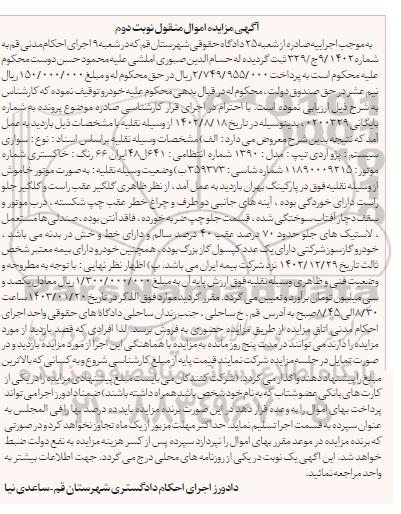 آگهی مزایده اموال منقول نوبت دوم
به موجب اجراییه صادره از شعبه ۲۵ دادگاه حقوقی شهرستان قم که در شعبه ۹ اجرای احکام مدنی قم به
شماره ۹/۱۴۰۲ج/۳۲۹ ثبت گردیده له حسام الدین صبوری املشی علیه محمود حسن دوست محکوم
علیه محکوم است به پرداخت ۲/۷۴۹/۹۵۵/۰۰۰ ریال در حق محکوم له و مبلغ ۱۵۰/۰۰۰/۰۰۰ ریال
نیم عشر در حق صندوق دولت، محکوم له در قبال بدهی محکوم علیه خودرو توقیف نموده که کارشناس
به شرح ذیل ارزیابی نموده است. با احترام در اجرای قرار کارشناسی صادره موضوع پرونده به شماره
بایگانی ۰۲۰۰۳۲۹، بدینوسیله در تاریخ ۱۴۰۲/۸/۱۸ از وسیله نقلیه با مشخصات ذیل بازدید به عمل
آمد که نتیجه بدین شرح معروض می دارد: الف) مشخصات وسیله نقلیه بر اساس اسناد: نوع: سواری
سیستم: پژو آردی تیپ: مدل: ۱۳۹۰ شماره انتظامی: ۶۴۱ل۴۸ ایران ۶۶ رنگ: خاکستری شماره
موتور: ۱۱۸۹۰۰۰۹۳۱۵ شماره شاسی: ۳۵۹۳۷۳ ب) وضعیت وسیله نقلیه: به صورت موتور خاموش
از وسیله نقلیه فوق در پارکینگ بهران بازدید به عمل آمد، از نظر ظاهری گلگیر عقب راست و گلگیر جلو
راست دارای خوردگی بوده، آینه های جانبی دو طرف و چراغ خطر عقب چپ شکسته، درب موتور و
سقف دچار آفتاب سوختگی شده، قسمت جلو چپ ضربه خورده، فاقد آنتن بوده، صندلی ها مستعمل
، لاستیک های جلو حدود ۷۰ درصد عقب ۴۰ درصد سالم و دارای خط و خش در بدنه می باشد،
خودرو گازسوز شرکتی دارای یک عدد کپسول گاز بزرگ بوده، همچنین خودرو دارای بیمه معتبر شخص
ثالث تاریخ ۱۴۰۲/۱۲/۲۹ نزد شرکت بیمه ایران می باشد. پ) اظهار نظر نهایی: با توجه به مطروحه و
وضعیت فنی و ظاهری وسیله نقلیه فوق ارزش پایه آن به مبلغ ۱/۳۰۰/۰۰۰/۰۰۰ ریال معادل یکصد و
سی میلیون تومان برآورد و تعیین می گردد. مقرر گردید مورد فوق الذکر در تاریخ ۱۴۰۳/۰۱/۲۰ ساعت
۸/۳۰ الی ۸/۴۵ صبح به آدرس قم، خ ساحلی، جنب زندان ساحلی دادگاه های حقوقی واحد اجرای
احکام مدنی اتاق مزایده از طریق مزایده حضوری به فروش برسد. لذا افرادی که قصد بازدید از مورد
مزایده را دارند می توانند در مدت پنج روز مانده به مزایده با هماهنگی این اجرا از مورد مزایده بازدید و در
صورت تمایل در جلسه مزایده شرکت نمایند قیمت پایه از مبلغ کارشناسی شروع و به کسانی که بالاترین
مبلغ را پیشنهاد دهند واگذار می گردد. (شرکت کنندگان می بایست مبلغ پیشنهادی مزایده را در یکی از
کارت های بانکی عضو شتاب که به نام خود شخص باشد همراه داشته باشند) ضمنا دادورز اجرا می تواند
پرداخت بهای اموال را به وعده قرار دهد در این صورت برنده مزایده باید ده درصد بها را فی المجلس به
عنوان سپرده به قسمت اجرا تسلیم نماید. حداکثر مهلت مزبور از یک ماه تجاوز نخواهد کرد و در صورتی
که برنده مزایده در موعد مقرر بهای اموال را نپردازد سپرده پس از کسر هزینه مزایده به نفع دولت ضبط
خواهد شد. این آگهی یک نوبت در یکی از روزنامه های محلی درج می گردد. جهت اطلاعات بیشتر به
واحد مراجعه نمائید.
دادورز اجرای احکام دادگستری شهرستان قم - ساعدی نیا